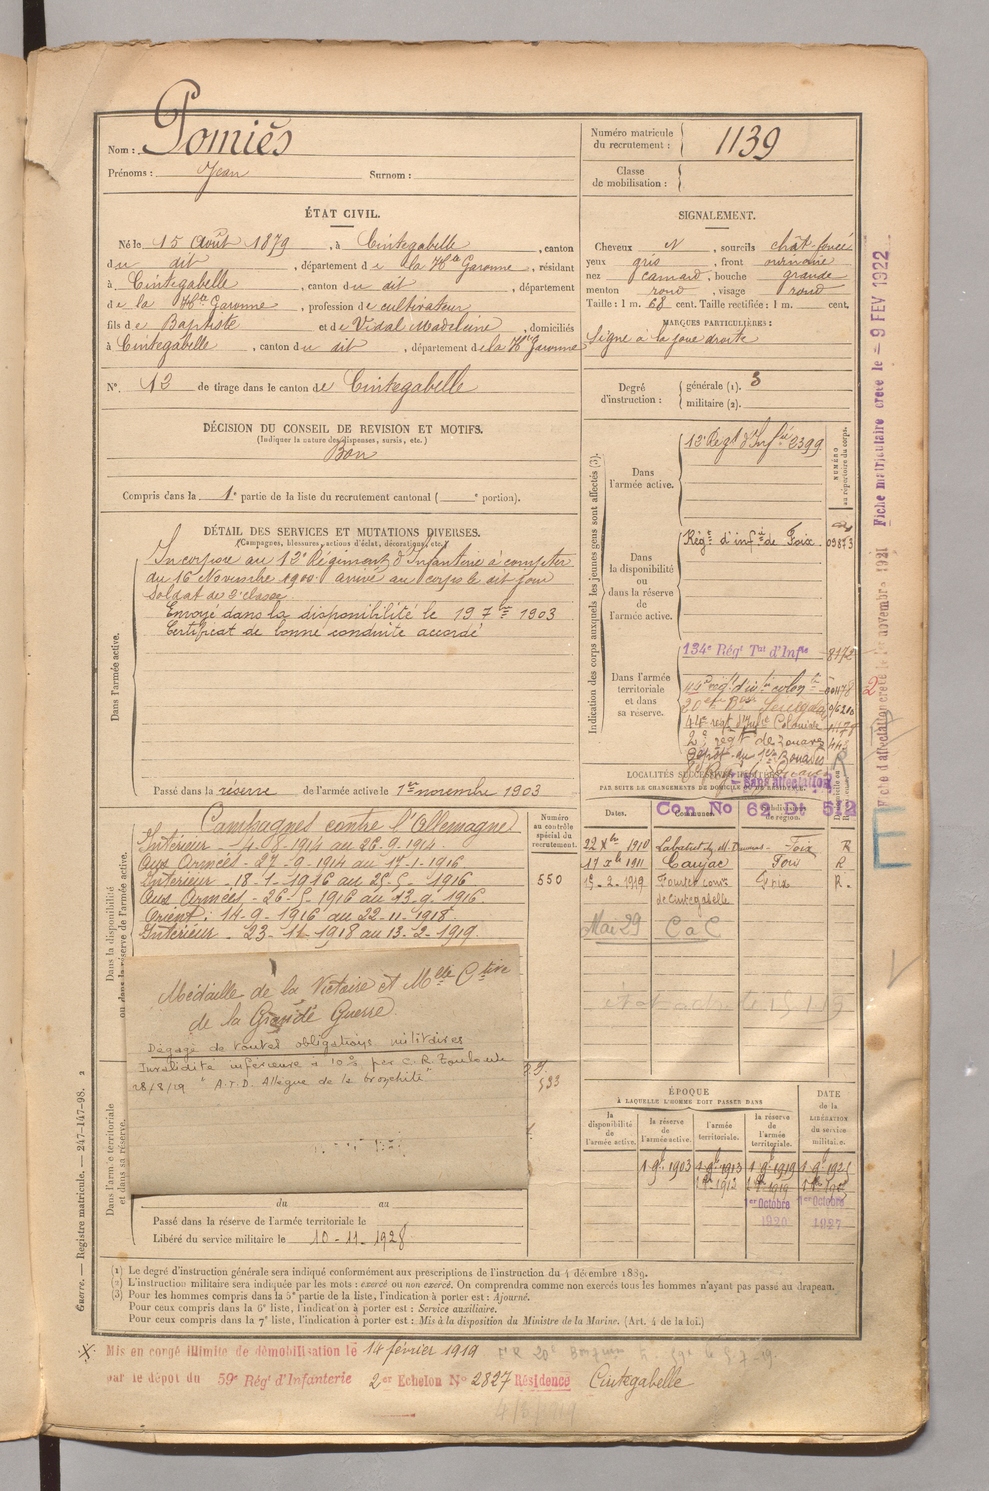 Nom : Pomiès
Prénoms : Jean Surnom :
Numéro matricule du recrutement : 1139
Classe de mobilisation :
ÉTAT CIVIL.
Né le 15 Août 1879, à Cintegabelle, canton
du dit, département de la Hte Garonne, résidant
à Cintegabelle, canton du dit, département
de la Hte Garonne, profession de cultivateur
fils de Baptiste et de Vidal Madeleine, domiciliés
à Cintegabelle, canton du dit, département de la Hte Garonne
N° 12 de tirage dans le canton de Cintegabelle
SIGNALEMENT.
Cheveux N, sourcils chât-foncé
yeux gris, front ordinaire
nez camard, bouche grande
menton rond, visage rond
Taille : 1 m. 68 cent. Taille rectifiée : 1 m. cent.
MARQUES PARTICULIÈRES :
Signe à la joue droite
Degré d'instruction : générale (1). 3
militaire (2).
DÉCISION DU CONSEIL DE REVISION ET MOTIFS.
(Indiquer la nature des dispenses, sursis, etc.)
Bon
Compris dans la 1e partie de la liste du recrutement cantonal ( e portion).
DÉTAIL DES SERVICES ET MUTATIONS DIVERSES.
(Campagnes, blessures, actions d'éclat, décorations, etc.)
Dans l'armée active.
Incorporé au 12e Régiment d'Infanterie à compter
du 16 Novembre 1900 arrivé au corps le dit jour
Soldat de 2e classe
Envoyé dans la disponibilité le 19 7bre 1903
Certificat de bonne conduite accordé
Passé dans la réserve de l'armée active le 1er novembre 1903
Indication des corps auxquels les jeunes gens sont affectés (3).
NUMÉRO au répertoire du corps.
Dans l'armée active.
12e Regt d'Infrie 2399
Dans la disponibilité ou dans la réserve de l'armée active.
Régt d'infie de Foix 09873
Dans l'armée territoriale et dans sa réserve.
134e Régt Tal d'Infie 8172
44e regt d'Infie Coloniale
2e regt de Zouaves
Dépôt du 1er Zouaves
Sans affectation
Con. No 62 Dt 512
LOCALITÉS SUCCESSIVES HABITÉES
PAR SUITE DE CHANGEMENTS DE DOMICILE OU DE RÉSIDENCE.
Dates. Communes. Subdivisions de région.
22 Xbre 1910 Foix R
17 Xbre 1911 Caujac Foix R
15-2-1919 de Cintegabelle R.
Mai 29 C a C
Dans la disponibilité ou dans la réserve de l'armée active.
Numéro au contrôle spécial du recrutement.
550
Campagnes contre l'Allemagne
Intérieur - 4-8-1914 au 26-9-1914
Aux Armées - 27-9-1914 au 17-1-1916
Intérieur - 18-1-1916 au 25-5-1916
Aux Armées - 26-5-1916 au 13-9-1916.
Orient : 14-9-1916 au 22-11-1918.
Intérieur - 23-11-1918 au 13-2-1919.
Médaille de la Victoire et Mlle Ctive
de la Grande Guerre
Dégagé de toutes obligations militaires
Invalidité inférieure à 10% par C.R. Toulouse
28/8/19 " A.T.D. Allègue de la bronchite"
Dans l'armée territoriale et dans sa réserve.
du au
Passé dans la réserve de l'armée territoriale le
Libéré du service militaire le 10-11-1928
ÉPOQUE
À LAQUELLE L'HOMME DOIT PASSER DANS
la disponibilité de l'armée active.
la réserve de l'armée active.
l'armée territoriale.
la réserve de l'armée territoriale.
DATE de la LIBÉRATION du service militaire.
1 9b 1903 1 9b 1913 1 9b 1919 1 9b 1925
1er Octobre 1er Octobre
1920 1927
(1) Le degré d'instruction générale sera indiqué conformément aux prescriptions de l'instruction du 4 décembre 1889.
(2) L'instruction militaire sera indiquée par les mots : exercé ou non exercé. On comprendra comme non exercés tous les hommes n'ayant pas passé au drapeau.
(3) Pour les hommes compris dans la 5e partie de la liste, l'indication à porter est : Ajourné.
Pour ceux compris dans la 6e liste, l'indication à porter est : Service auxiliaire.
Pour ceux compris dans la 7e liste, l'indication à porter est : Mis à la disposition du Ministre de la Marine. (Art. 4 de la loi.)
Mis en congé illimité de démobilisation le 14 février 1919
par le dépôt du 59e Rég d'Infanterie 2er Echelon No 2827 Résidence Cintegabelle
4/8/1919
Guerre. — Registre matricule. — 247-147-98. 2
Fiche matriculaire créée le - 9 FEV 1922
Fiche d'affectation créée le novembre 1921